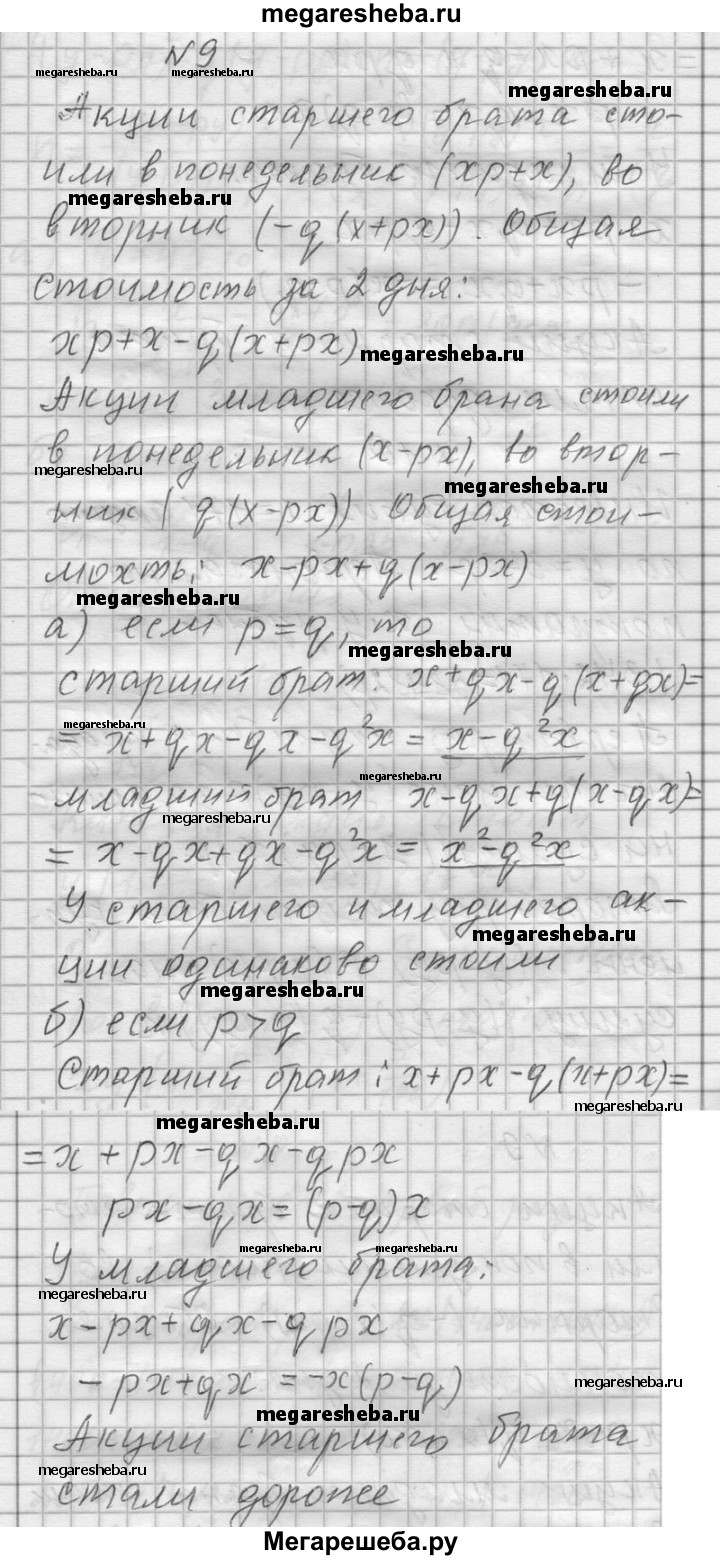 megaresheba.ru
N9
megaresheba.ru megaresheba.ru megaresheba.ru
Акции старшего брата сто-
или в понедельник (xp+x), во
megaresheba.ru
вторник (-q(x+px)). Общая
стоимость за 2 дня:
xp+x-q(x+px)
megaresheba.ru
Акции младшего брана стоили
в понедельник (x-px), во втор-
megaresheba.ru megaresheba.ru
ник ( q(x-px)) Общая стои-
мохть: x-px+q(x-px)
megaresheba.ru
а) если p=q, то
megaresheba.ru
старший брат: x+qx-q(x+qx)=
megaresheba.ru
= x+qx-qx-q²x = x-q²x
megaresheba.ru
младший брат x-qx+q(x-qx)=
megaresheba.ru
= x-qx+qx-q²x = x²-q²x
У старшего и младшего ак-
megaresheba.ru
ции одинаково стоили
megaresheba.ru
б) если p>q
Старший брат: x+px-q(x+px)=
megaresheba.ru
megaresheba.ru
=x+px-qx-qpx
px-qx=(p-q)x
megaresheba.ru megaresheba.ru
У младшего брата:
megaresheba.ru
x-px+qx-qpx
-px+qx =-x(p-q)
megaresheba.ru
megaresheba.ru
Акции старшего брата
megaresheba.ru
стали дороже
Мегарешеба.ру